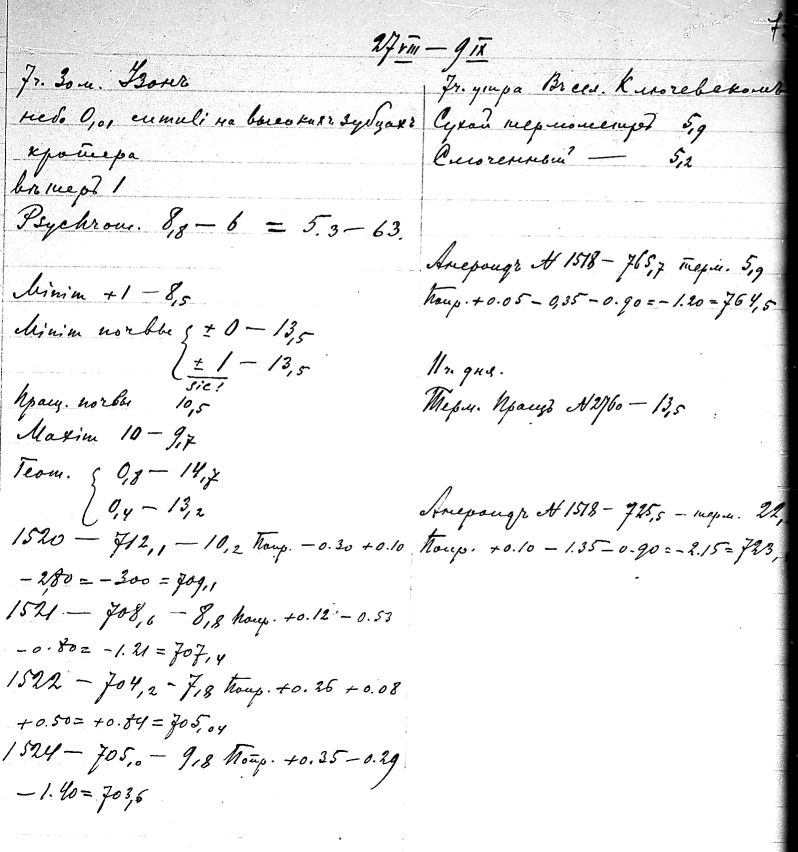 27 VIII — 9 IX
7ч. 30м. Узонъ
небо 0,01 cumuli на высокихъ зубцахъ
кратера
вѣтеръ 1
Psychrom. 8,8 — 6 = 5.3 — 63.
Minim +1 — 8,5
Minim почвы ± 0 — 13,5
± 1 — 13,5
sic!
Пращ. почвы 10,5
Maxim 10 — 9,7
Геот. 0,8 — 14,7
0,4 — 13,2
1520 — 712,1 — 10,2 Попр. — 0.30 + 0.10
— 2,80 = — 300 = 709,1
1521 — 708,6 — 8,8 Попр. + 0.12 — 0.53
— 0.80 = — 1.21 = 707,4
1522 — 704,2 — 7,8 Попр. + 0.26 + 0.08
+ 0.50 = + 0.84 = 705,04
1524 — 705,0 — 9,8 Попр. + 0.35 — 0.29
— 1.40 = 703,6
7ч. утра Въ сел. Ключевскомъ
Сухой термометръ 5,9
Смоченный — 5,2
Анероидъ N 1518 — 765,7 терм. 5,9
Попр. + 0.05 — 0,35 — 0.90 = — 1.20 = 764,5
11ч. дня.
Терм. Пращъ N2760 — 13,5
Анероидъ N 1518 — 725,5 — терм. 22,
Попр. + 0.10 — 1.35 — 0.90 = — 2.15 = 723,